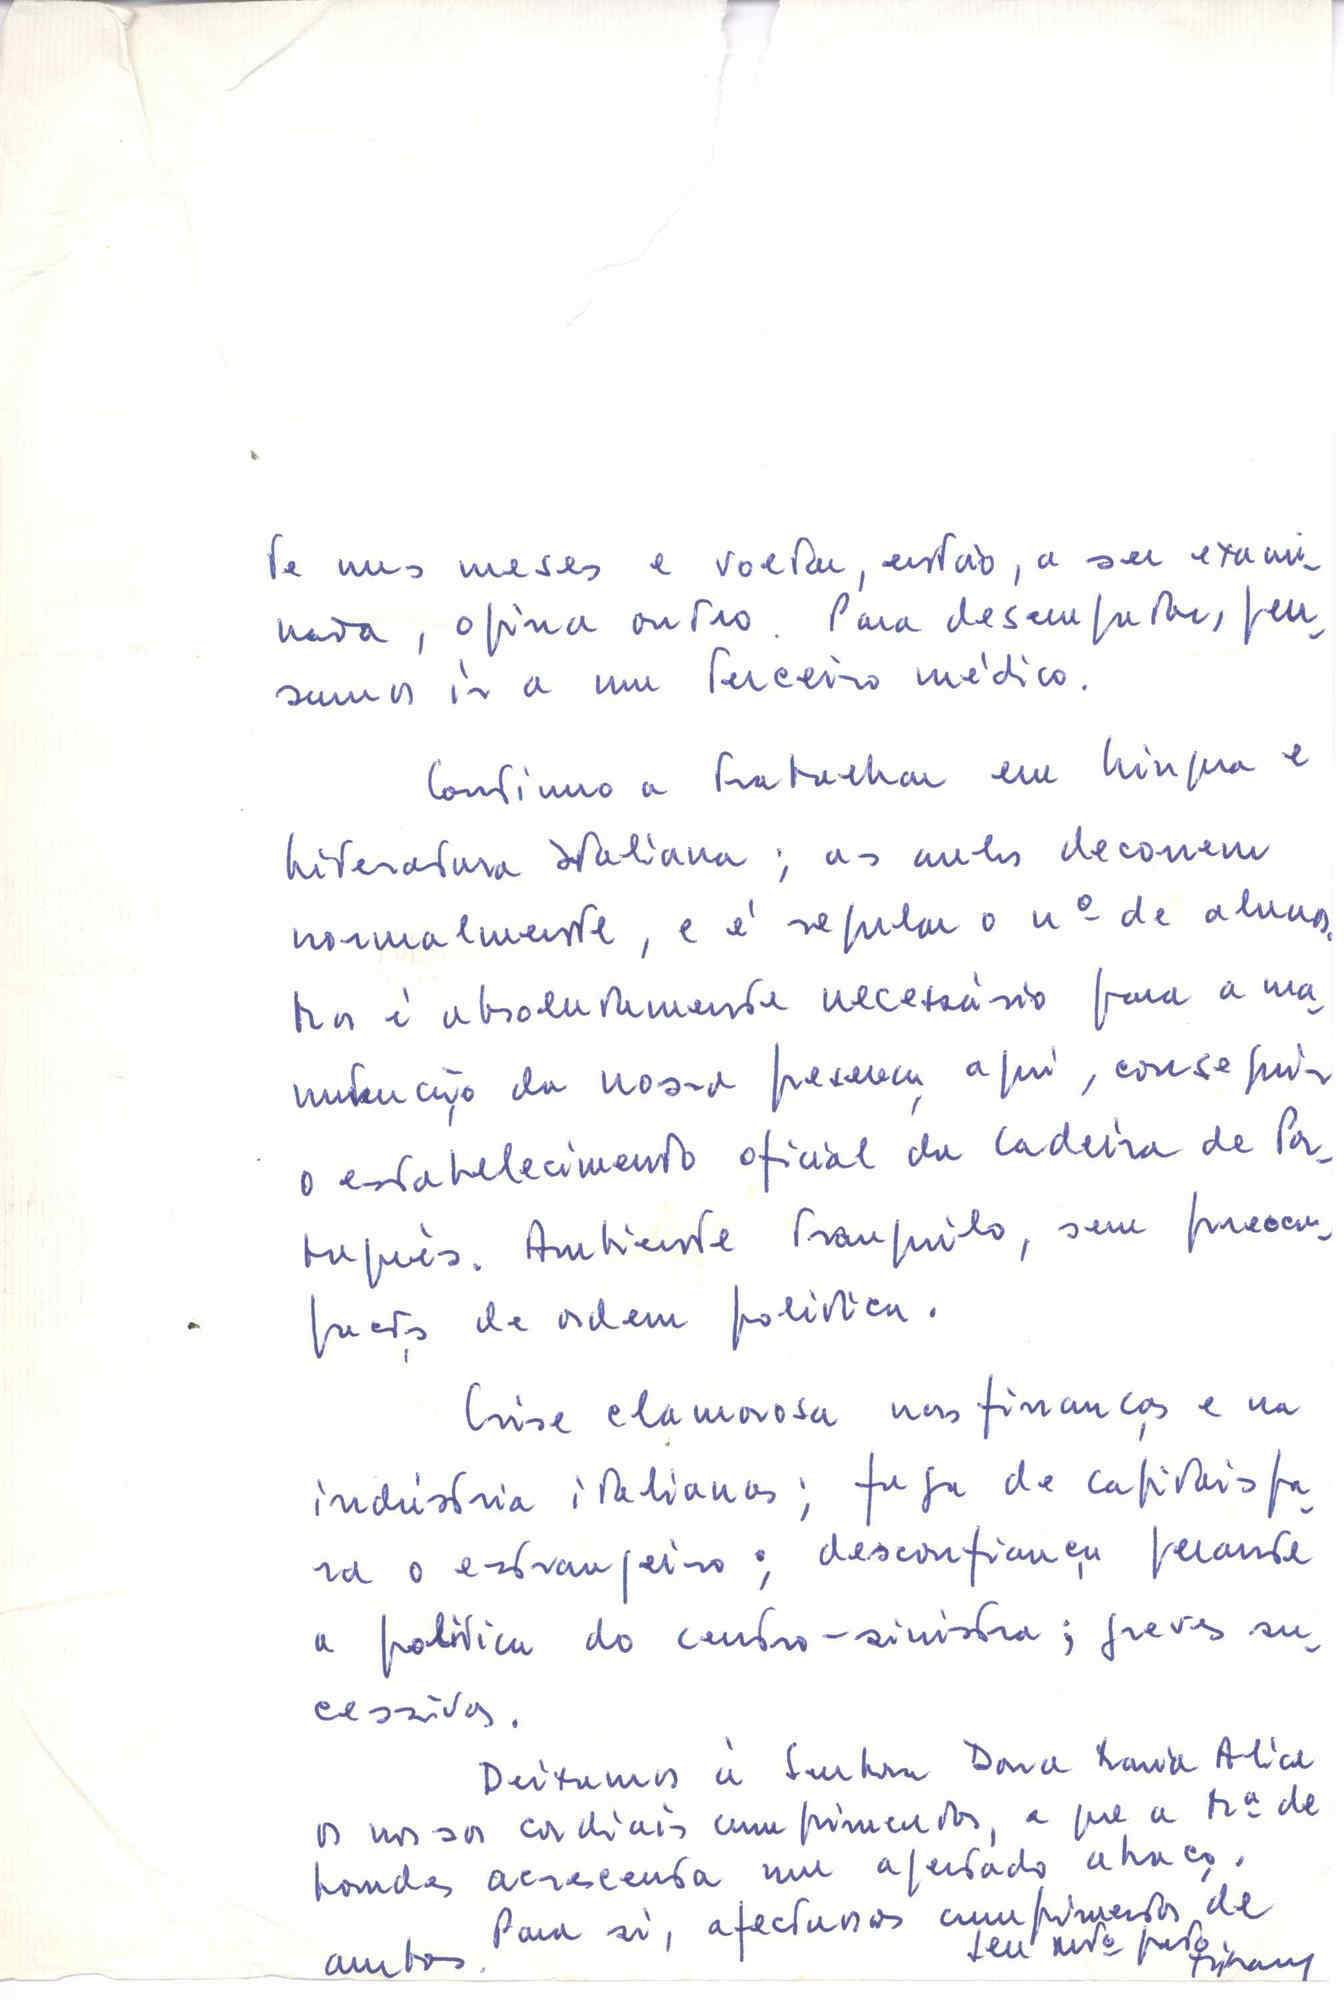 te uns meses e voltar, então, a ser exami-
nada, opina outro. Para desempatar, pen-
samos ir a um terceiro médico.
Continuo a trabalhar em Língua e
Literatura Italiana; as aulas decorrem
normalmente, e é regular o nº de alunos.
Mas é absolutamente necessário para a ma-
nutenção da nossa presença aqui, conseguir
o estabelecimento oficial da Cadeira de Por-
tuguês. Ambiente tranquilo, sem preocu-
pações de ordem política.
Crise clamorosa nas finanças e na
indústria italianas; fuga de capitais pa-
ra o estrangeiro; desconfiança perante
a política do centro-sinistra; greves su-
cessivas.
Deixamos à Senhora Dona Maria Alice
os nossos cordiais cumprimentos, a que a Mª de
Lourdes acrescenta um apertado abraço.
Para si, afectuosos cumprimentos de
ambos.
seu mtº grato